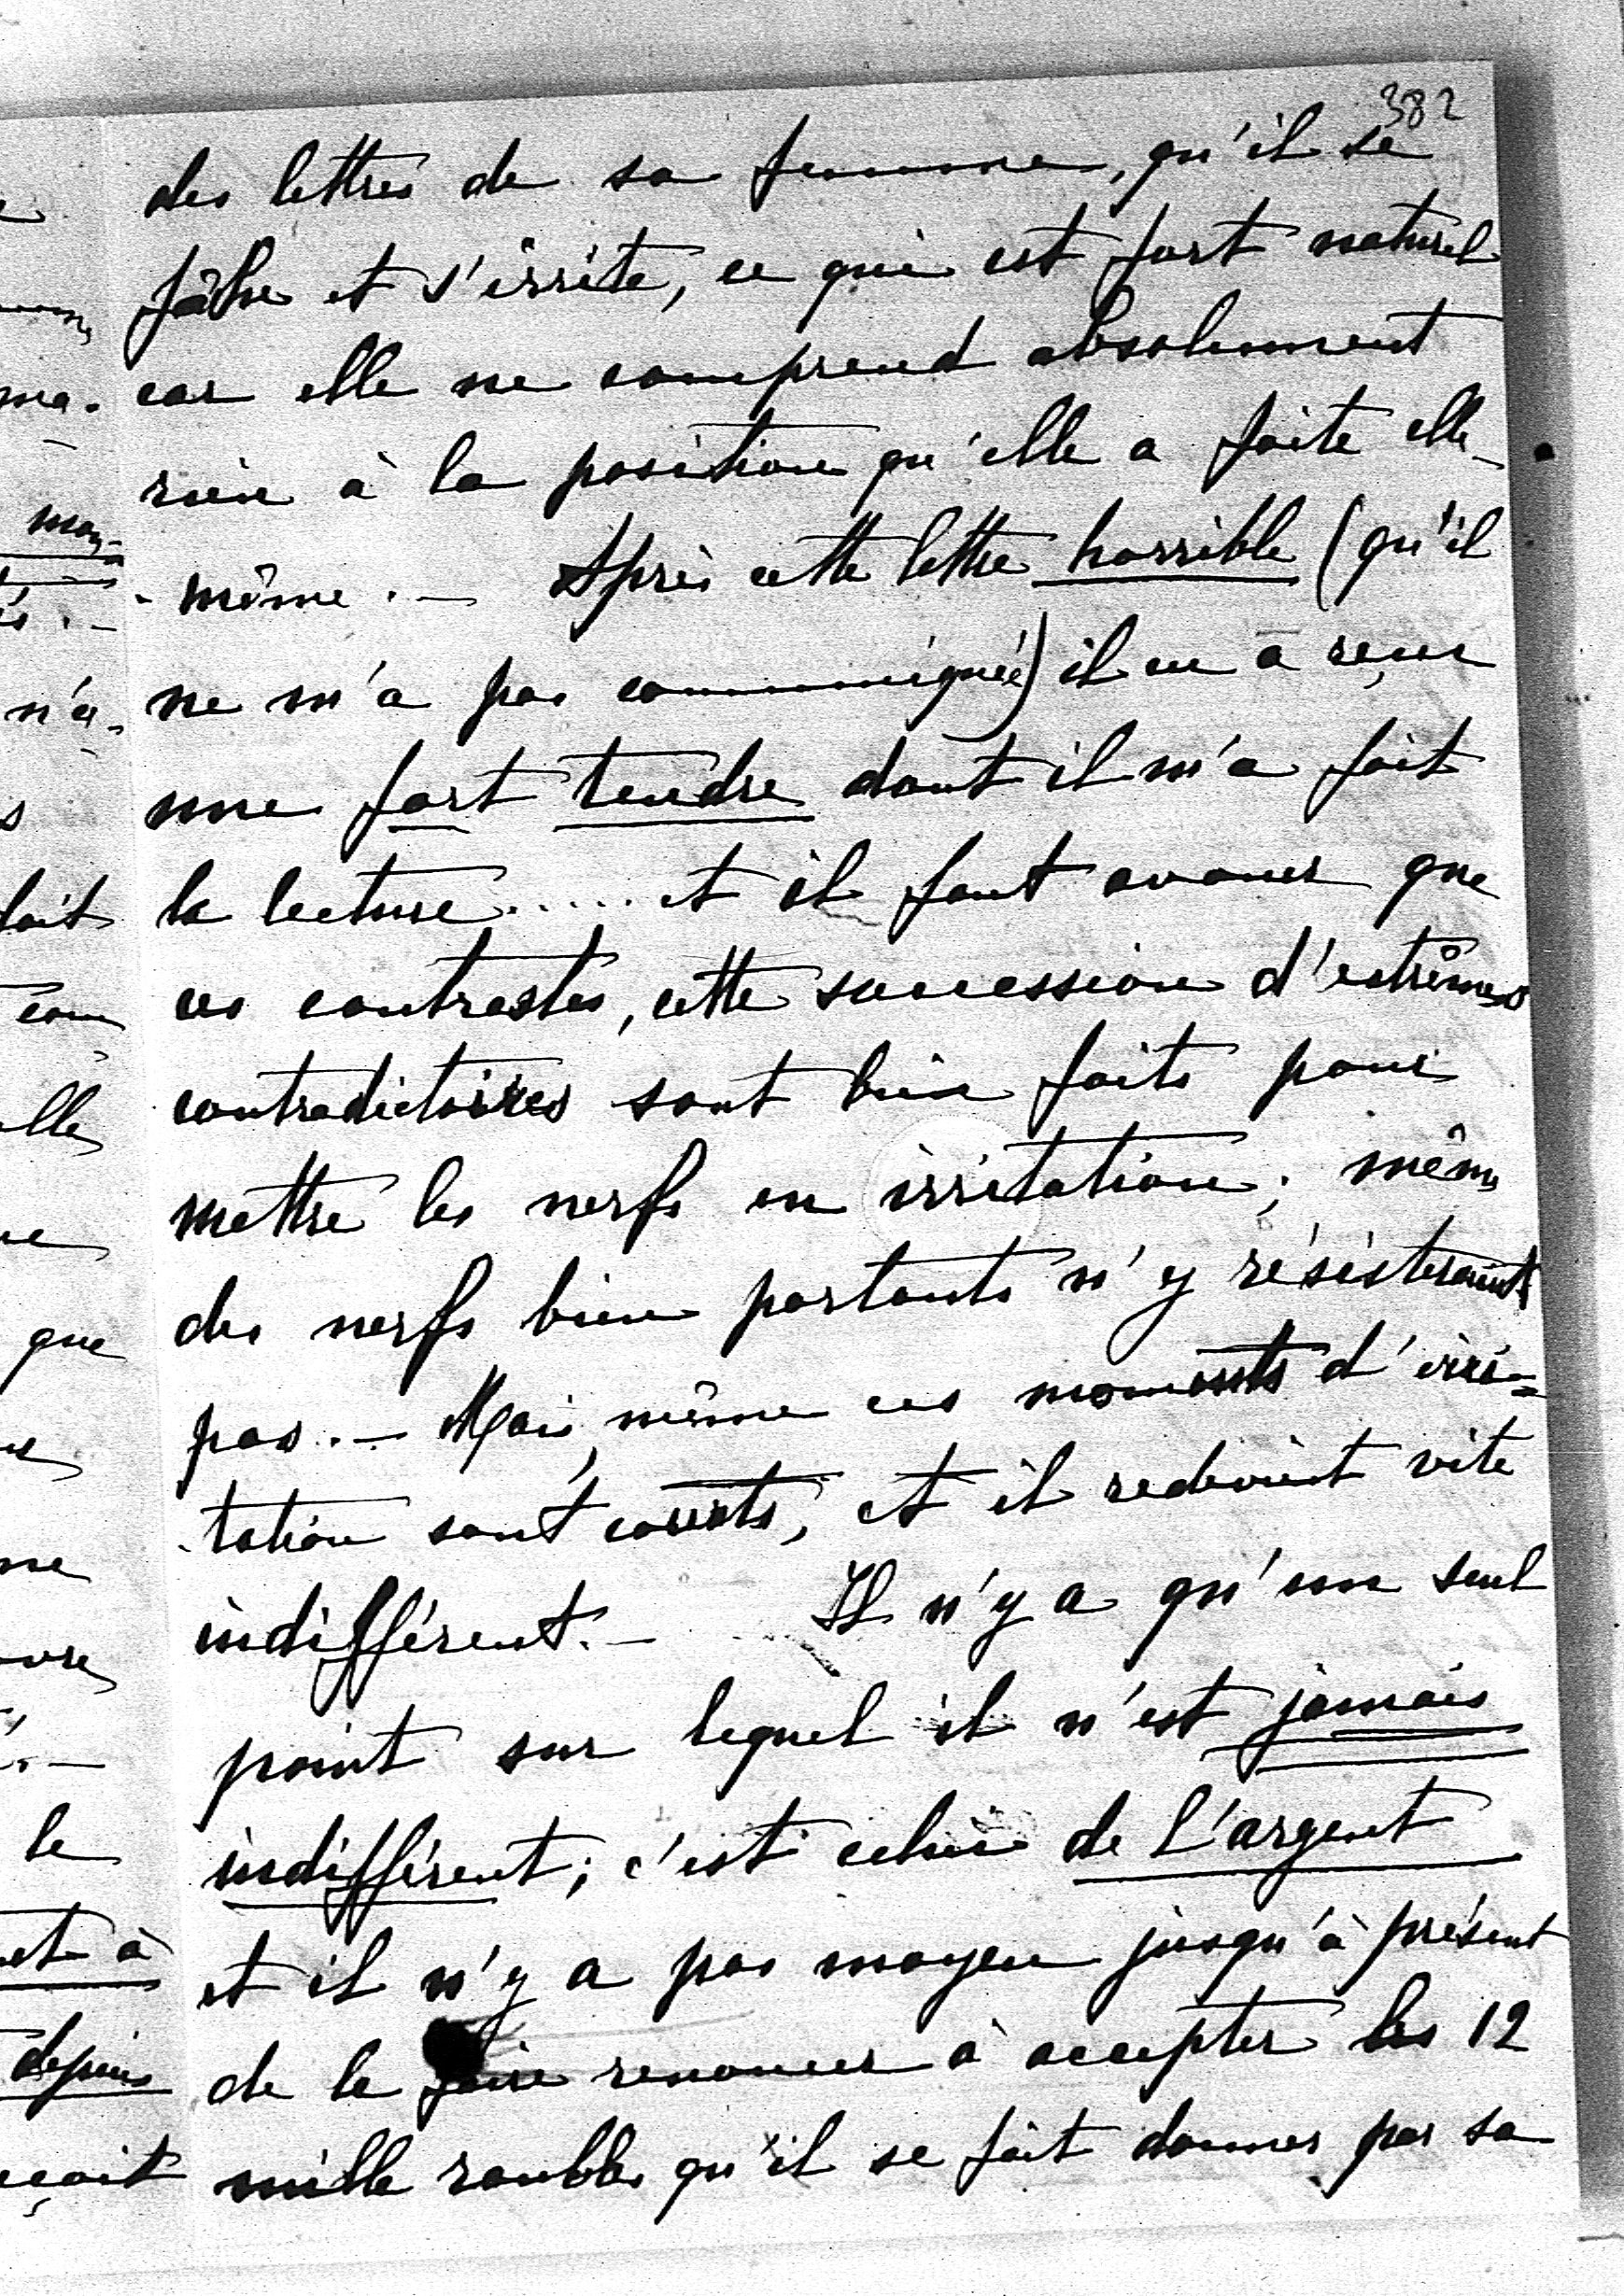 382
des lettres de sa femme, qu'il se
fâche et s'irrite, ce qui est fort naturel
car elle ne comprend absolument
rien à la position qu'elle a faite elle-
- même. — Après cette lettre horrible (qu'il
ne m'a pas communiquée) il en a reçu
une fort tendre dont il m'a fait
la lecture...... et il faut avouer que
ces contrastes, cette succession d'extrêmes
contradictoires sont bien faits pour
mettre les nerfs en irritation; même
des nerfs bien portants n'y résisteraient
pas. — Mais, même ces moments d'irri=
-tation sont courts, et il redevient vite
indifférent. — Il n'y a qu'un seul
point sur lequel il n'est jamais
indifférent; c'est celui de l'argent
et il n'y a pas moyen jusqu'à présent
de le faire renoncer à accepter les 12
mille roubles qu'il se fait donner par sa